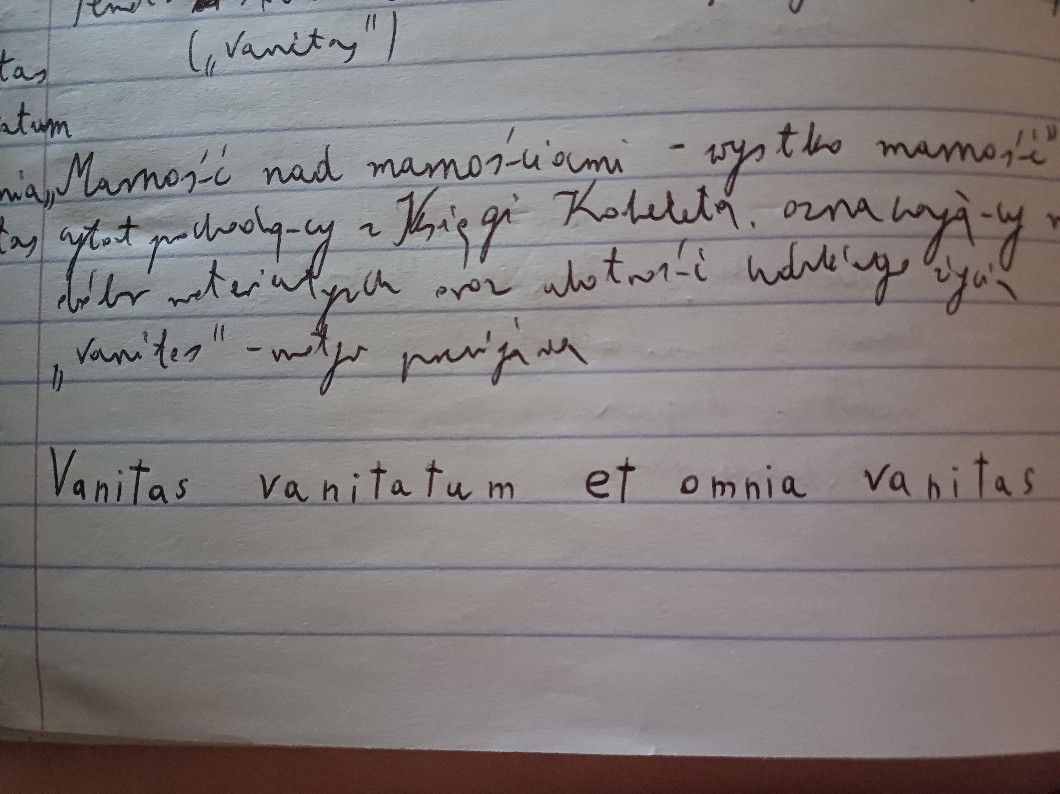 („Vanitas")
tas
atum
nia „Marność nad marnościami - wystko marność"
tas cytat pochodzący z Księgi Koheleta. oznaczają-cy
dóbr materialnych oraz ulotność ludzkiego życia
„Vanitas" - motyw przemijania
Vanitas vanitatum et omnia vanitas